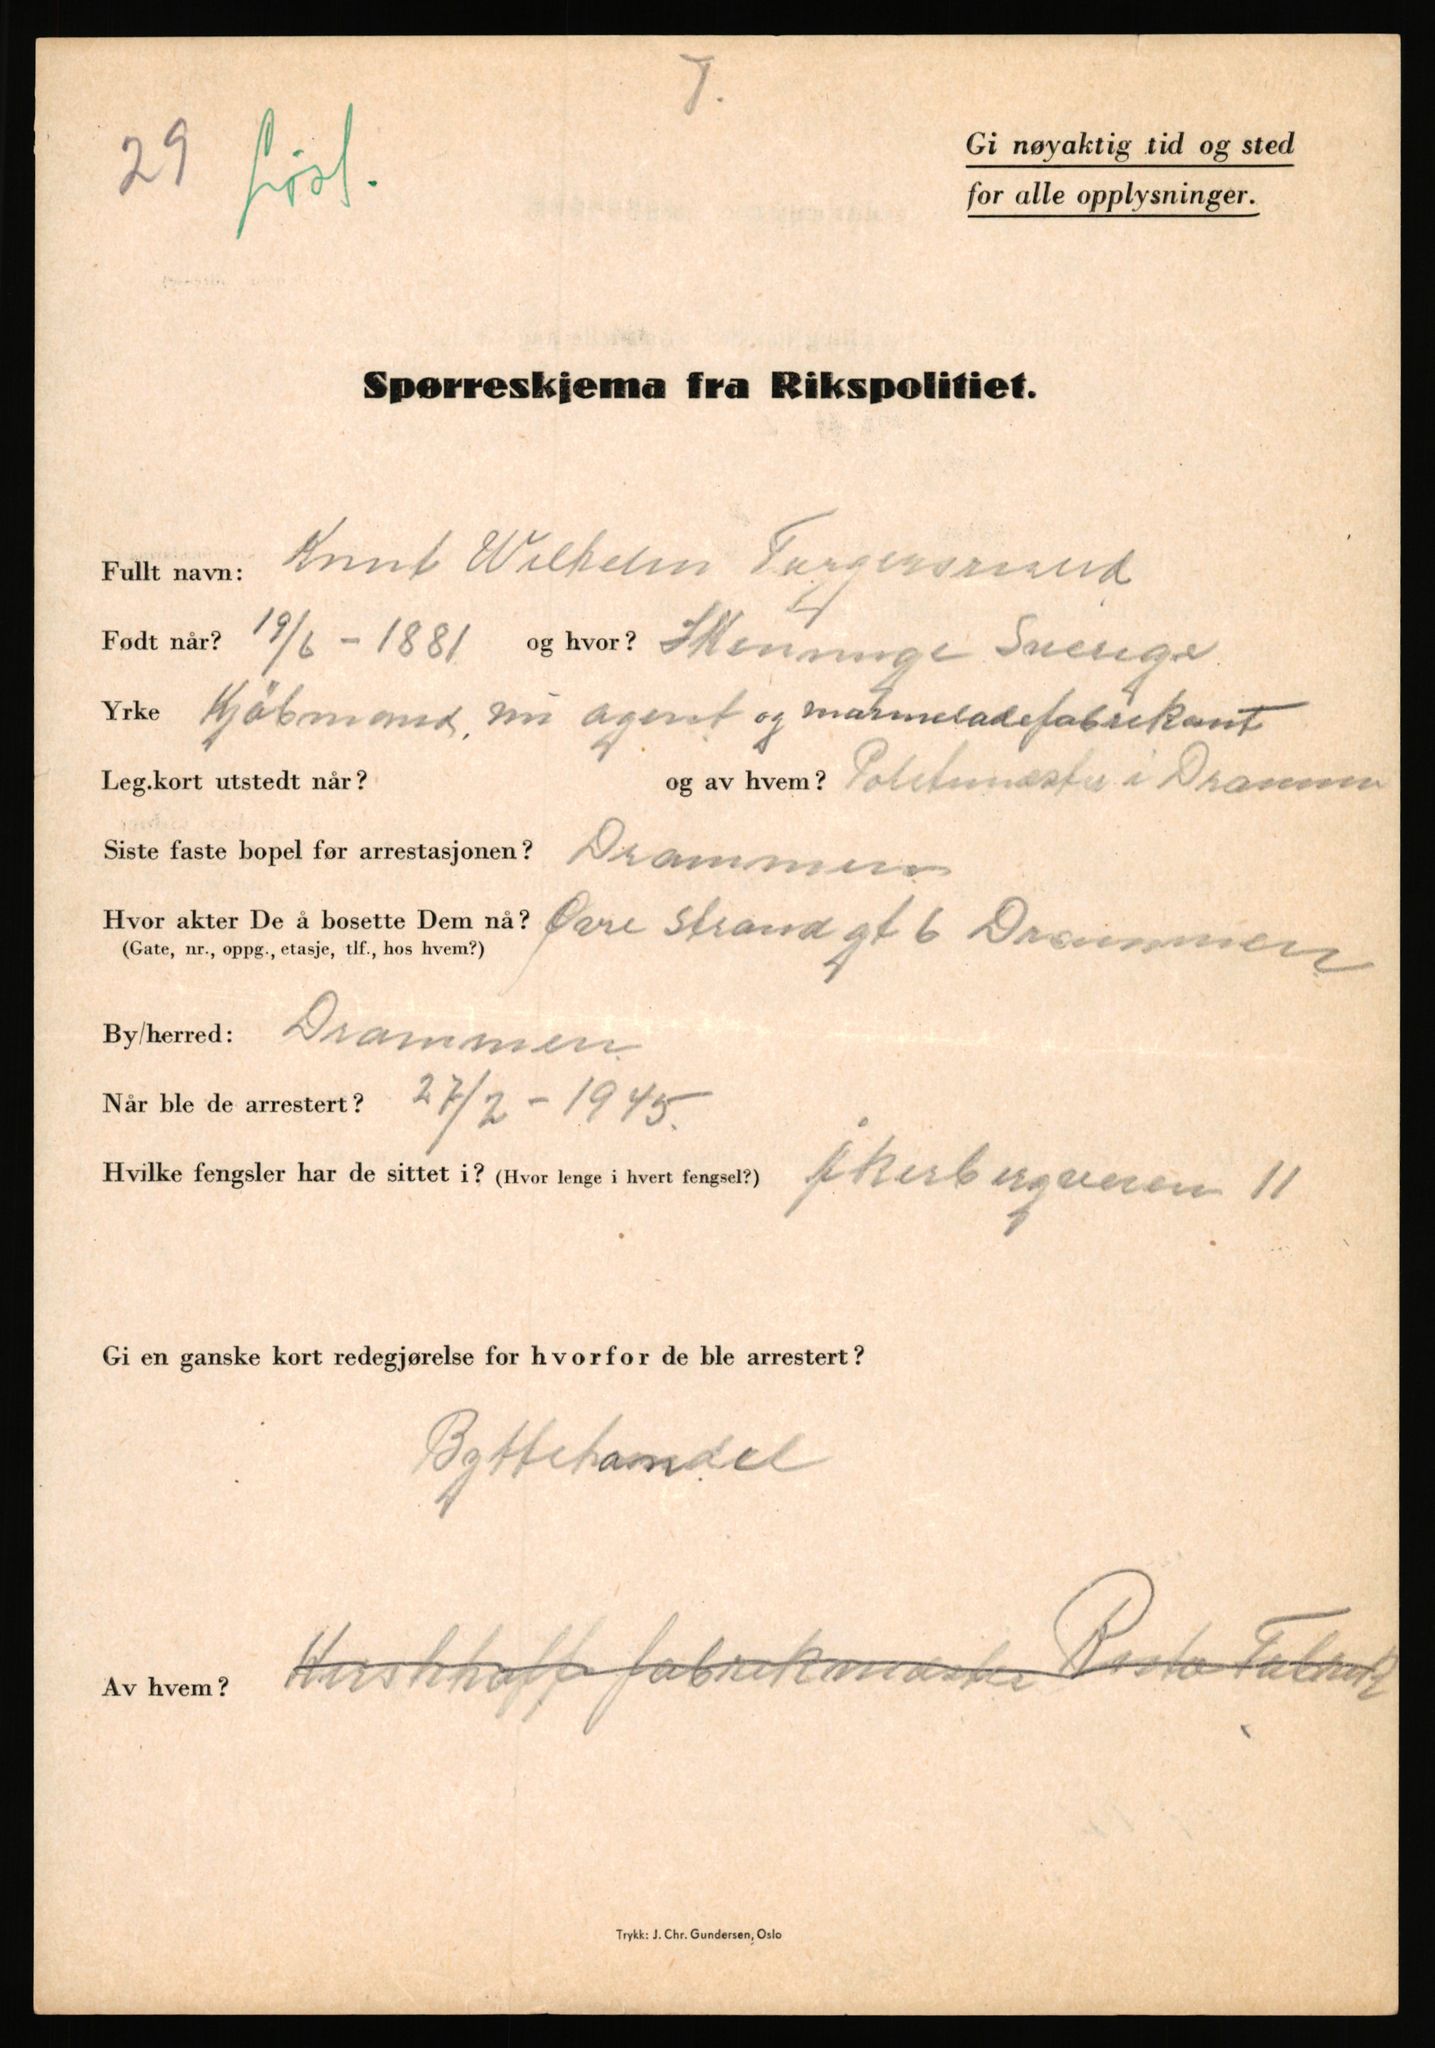 T.
29 Løsl.
Gi nøyaktig tid og sted
for alle opplysninger.
Spørreskjema fra Rikspolitiet.
Fullt navn: Knut Wilhelm
Født når? 19/6 - 1881 og hvor? Sverige
Yrke Kjöbmand, nu agent og marmeladefabrikant
Leg.kort utstedt når? og av hvem? i Drammen
Siste faste bopel før arrestasjonen? Drammen
Hvor akter De å bosette Dem nå? Øvre Strand gt 6 Drammen
(Gate, nr., oppg., etasje, tlf., hos hvem?)
By/herred: Drammen
Når ble de arrestert? 27/2 - 1945.
Hvilke fengsler har de sittet i? (Hvor lenge i hvert fengsel?) Åkerbergveien 11
Gi en ganske kort redegjørelse for hvorfor de ble arrestert?
Byttehandel
Av hvem?
Trykk: J. Chr. Gundersen, Oslo